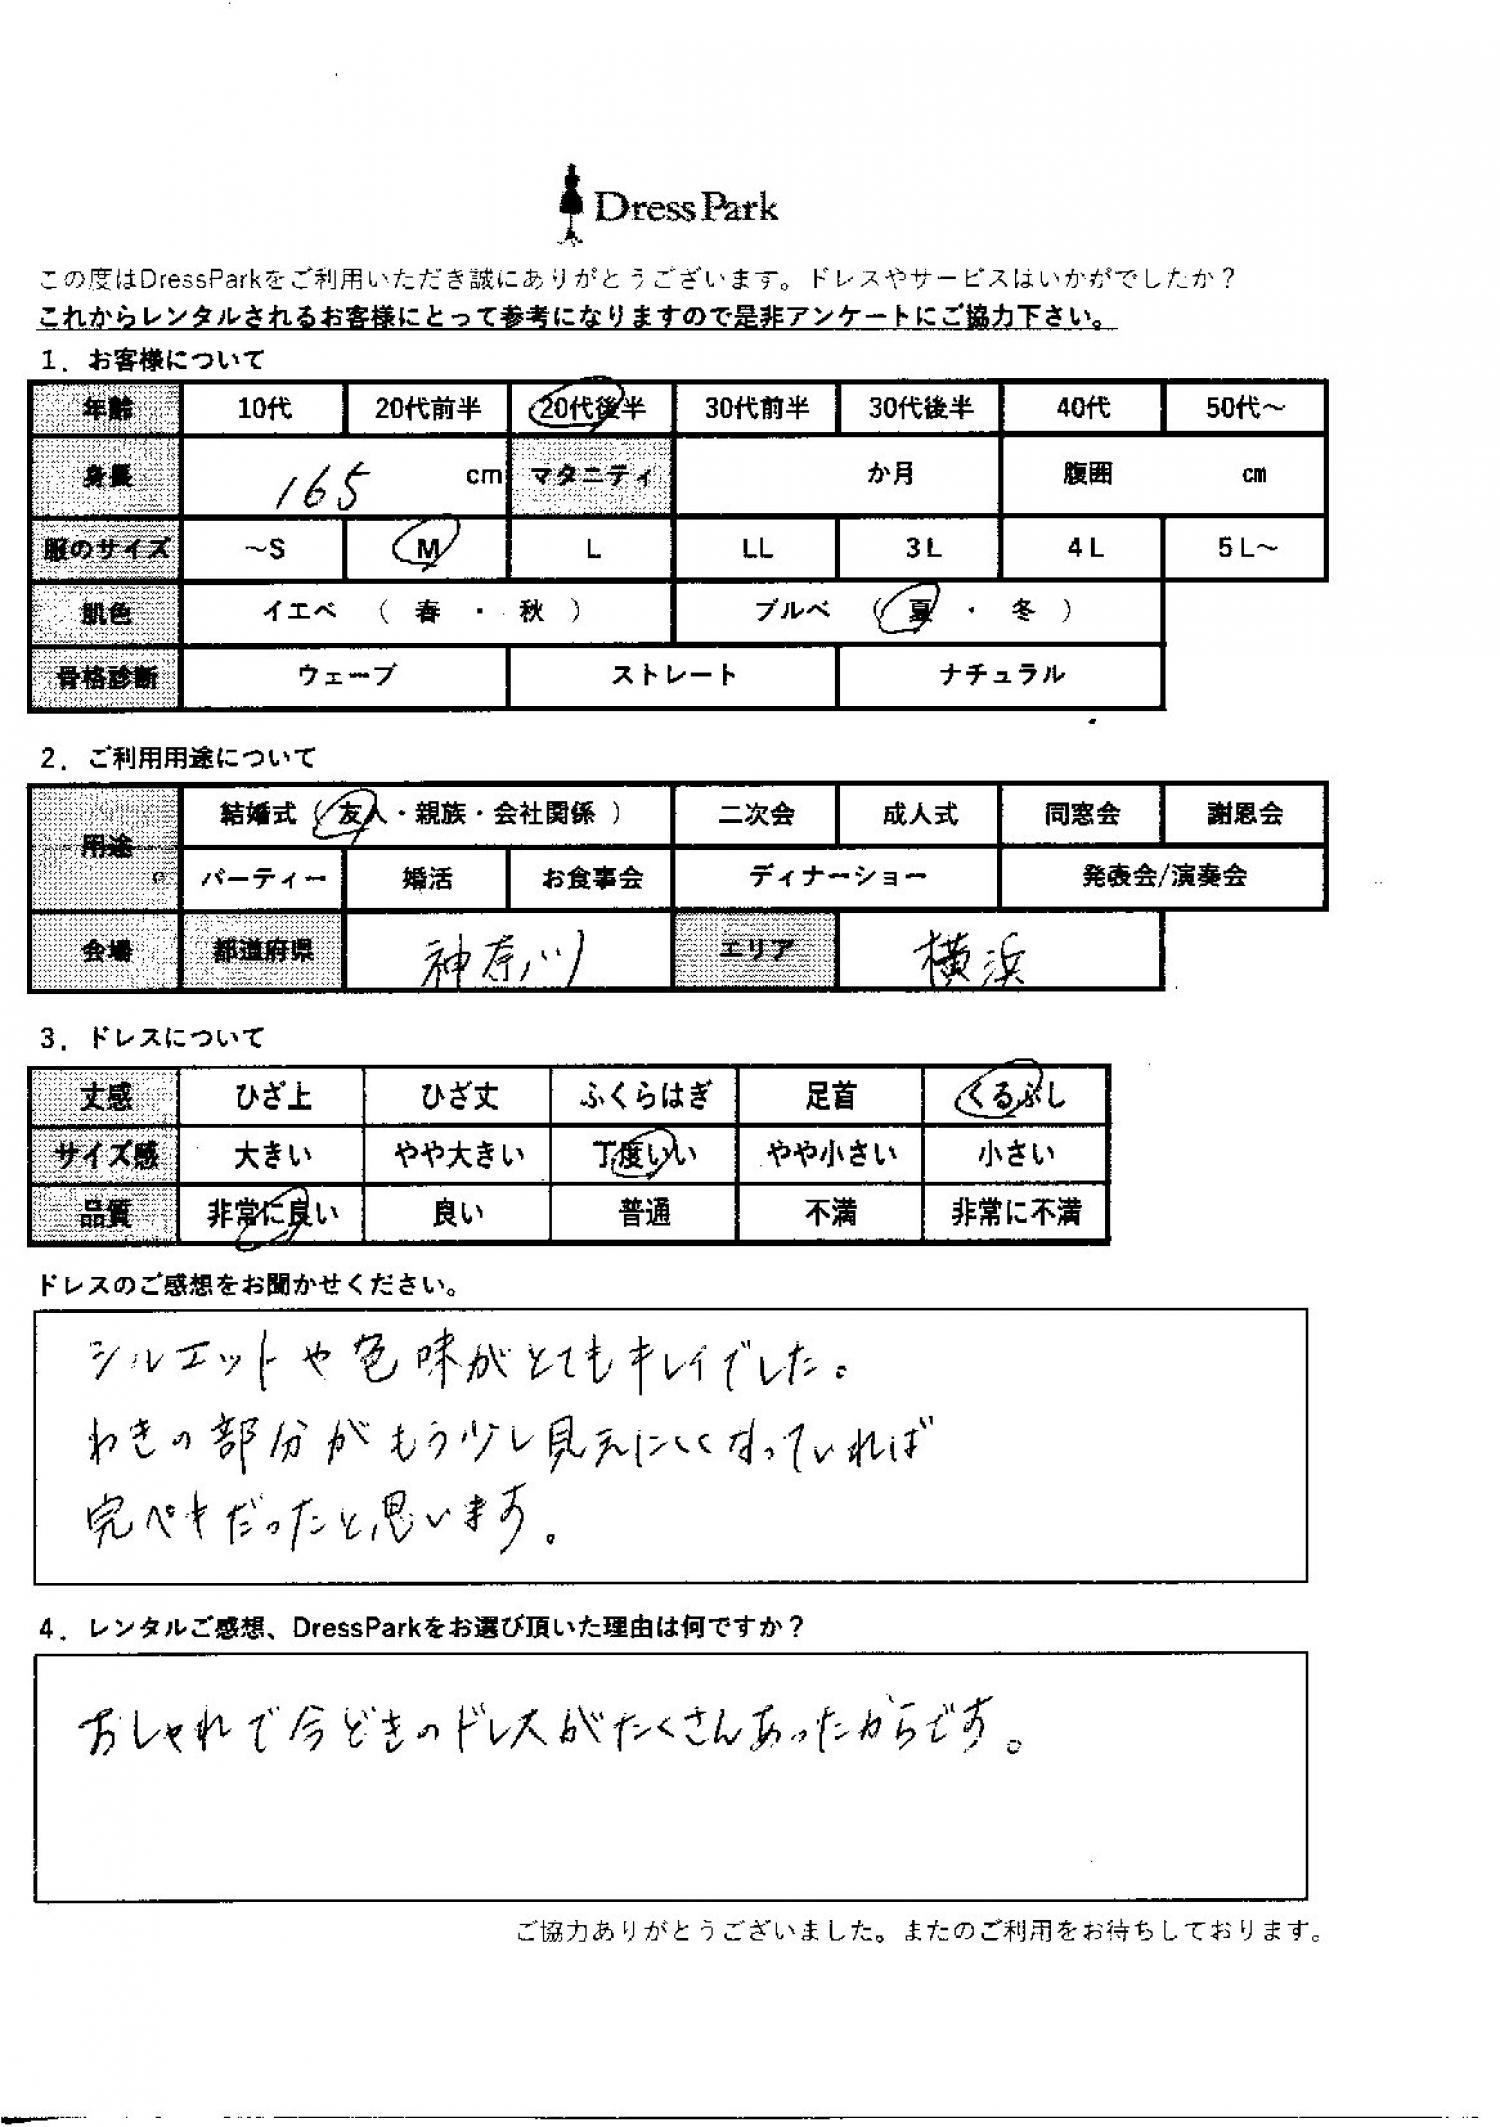 DressPark
この度はDressParkをご利用いただき誠にありがとうございます。ドレスやサービスはいかがでしたか？
これからレンタルされるお客様にとって参考になりますので是非アンケートにご協力下さい。
1．お客様について
年齢 10代 20代前半 20代後半 30代前半 30代後半 40代 50代～
身長 165 cm マタニティ か月 腹囲 cm
服のサイズ ～S M L LL 3L 4L 5L～
肌色 イエベ （ 春 ・ 秋 ） ブルベ （ 夏 ・ 冬 ）
骨格診断 ウェーブ ストレート ナチュラル
2．ご利用用途について
用途 結婚式（ 友人・親族・会社関係 ） 二次会 成人式 同窓会 謝恩会
パーティー 婚活 お食事会 ディナーショー 発表会/演奏会
会場 都道府県 神奈川 エリア 横浜
3．ドレスについて
丈感 ひざ上 ひざ丈 ふくらはぎ 足首 くるぶし
サイズ感 大きい やや大きい 丁度いい やや小さい 小さい
品質 非常に良い 良い 普通 不満 非常に不満
ドレスのご感想をお聞かせください。
シルエットや色味がとてもキレイでした。
わきの部分がもう少し見えにくくなっていれば
完ペキだったと思います。
4．レンタルご感想、DressParkをお選び頂いた理由は何ですか？
おしゃれで今どきのドレスがたくさんあったからです。
ご協力ありがとうございました。またのご利用をお待ちしております。